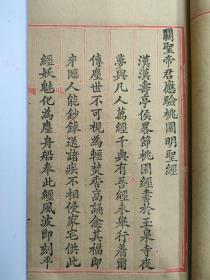 關聖帝君應驗桃園明聖經
漢漢壽亭侯畧節桃園經書於玉泉寺夜
夢與凡人萬經千典有吾經未舉行着爾
傳塵世不可視為輕焚香高誦念其福即
來臨人能鈔錄送諸疾不相侵家宅供此
經妖魅化為塵舟船奉此經風波即刻平